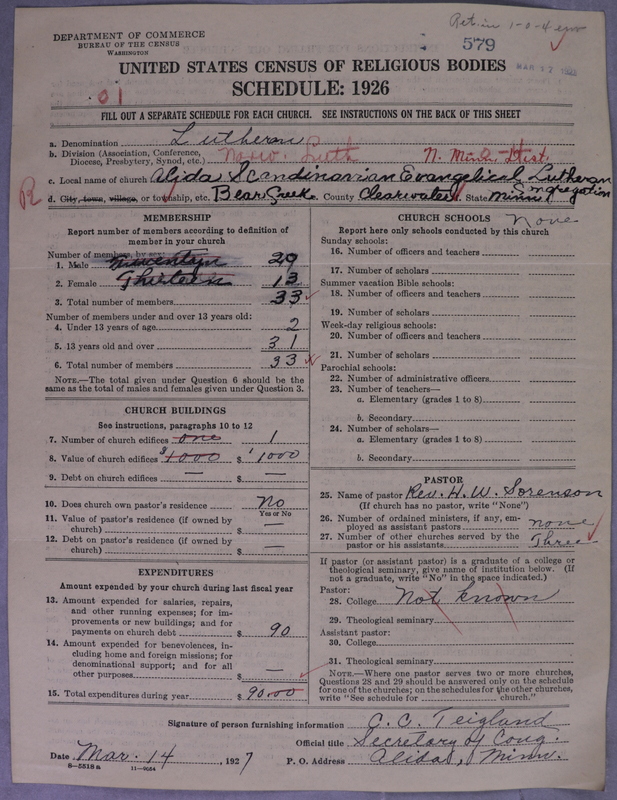 Ret. in 1-0-4
DEPARTMENT OF COMMERCE
BUREAU OF THE CENSUS
WASHINGTON
579
MAR 17
UNITED STATES CENSUS OF RELIGIOUS BODIES
SCHEDULE: 1926
01
FILL OUT A SEPARATE SCHEDULE FOR EACH CHURCH. SEE INSTRUCTIONS ON THE BACK OF THIS SHEET
a. Denomination Lutheran
b. Division (Association, Conference, Diocese, Presbytery, Synod, etc.) Norw. Luth N. Minn. Dist.
c. Local name of church Alida Scandinavian Evangelical Lutheran Congregation
R
d. City, town, village, or township, etc. Bear Creek County Clearwater State Minn
MEMBERSHIP
Report number of members according to definition of member in your church
Number of members, by sex:
1. Male 20
2. Female Thirteen 13
3. Total number of members 33
Number of members under and over 13 years old:
4. Under 13 years of age 2
5. 13 years old and over 31
6. Total number of members 33
NOTE.—The total given under Question 6 should be the same as the total of males and females given under Question 3.
CHURCH BUILDINGS
See instructions, paragraphs 10 to 12
7. Number of church edifices one 1
8. Value of church edifices $1000 $ 1000
9. Debt on church edifices — $ —
10. Does church own pastor's residence No
Yes or No
11. Value of pastor's residence (if owned by church) $
12. Debt on pastor's residence (if owned by church) $ —
EXPENDITURES
Amount expended by your church during last fiscal year
13. Amount expended for salaries, repairs, and other running expenses; for improvements or new buildings; and for payments on church debt $ 90
14. Amount expended for benevolences, including home and foreign missions; for denominational support; and for all other purposes $ —
15. Total expenditures during year $ 90.00
CHURCH SCHOOLS None
Report here only schools conducted by this church
Sunday schools:
16. Number of officers and teachers
17. Number of scholars
Summer vacation Bible schools:
18. Number of officers and teachers
19. Number of scholars
Week-day religious schools:
20. Number of officers and teachers
21. Number of scholars
Parochial schools:
22. Number of administrative officers
23. Number of teachers—
a. Elementary (grades 1 to 8)
b. Secondary
24. Number of scholars—
a. Elementary (grades 1 to 8)
b. Secondary
PASTOR
25. Name of pastor Rev. H. W. Sorenson
(If church has no pastor, write "None")
26. Number of ordained ministers, if any, employed as assistant pastors none
27. Number of other churches served by the pastor or his assistants Three
If pastor (or assistant pastor) is a graduate of a college or theological seminary, give name of institution below. (If not a graduate, write "No" in the space indicated.)
Pastor:
28. College Not known
29. Theological seminary
Assistant pastor:
30. College
31. Theological seminary
NOTE.—Where one pastor serves two or more churches, Questions 28 and 29 should be answered only on the schedule for one of the churches; on the schedules for the other churches, write "See schedule for ............ church."
Signature of person furnishing information O. C. Teigland
Official title Secretary of Cong.
Date Mar. 14, 1927 P. O. Address Alida, Minn.
8—5518 a 11—9054